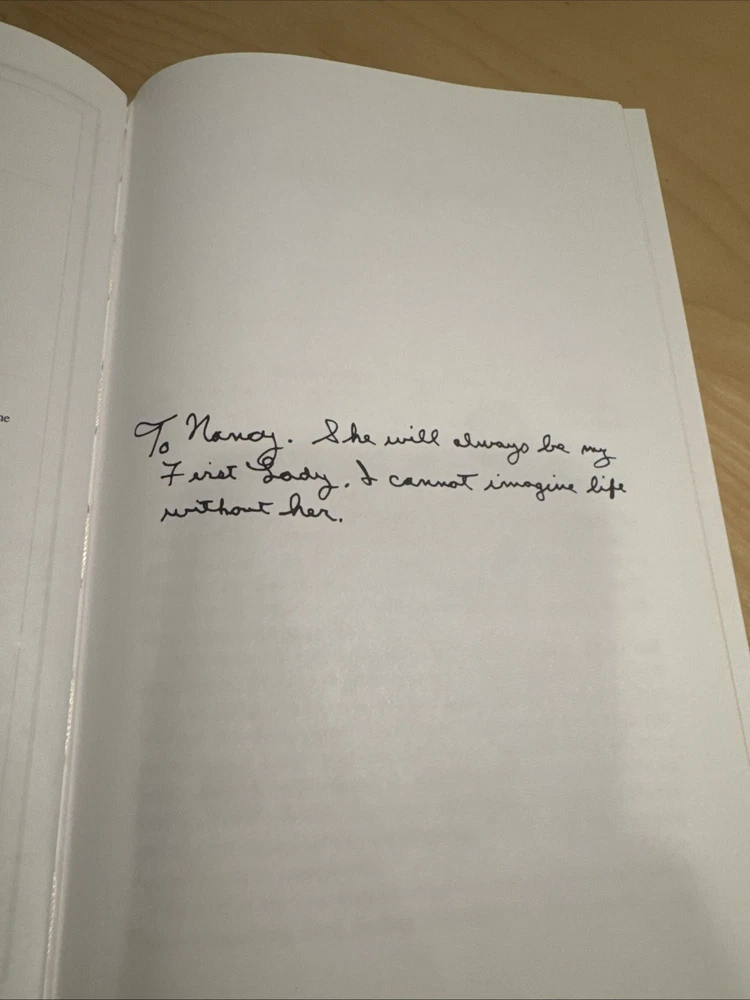 ne
To Nancy. She will always be my
First Lady. I cannot imagine life
without her.